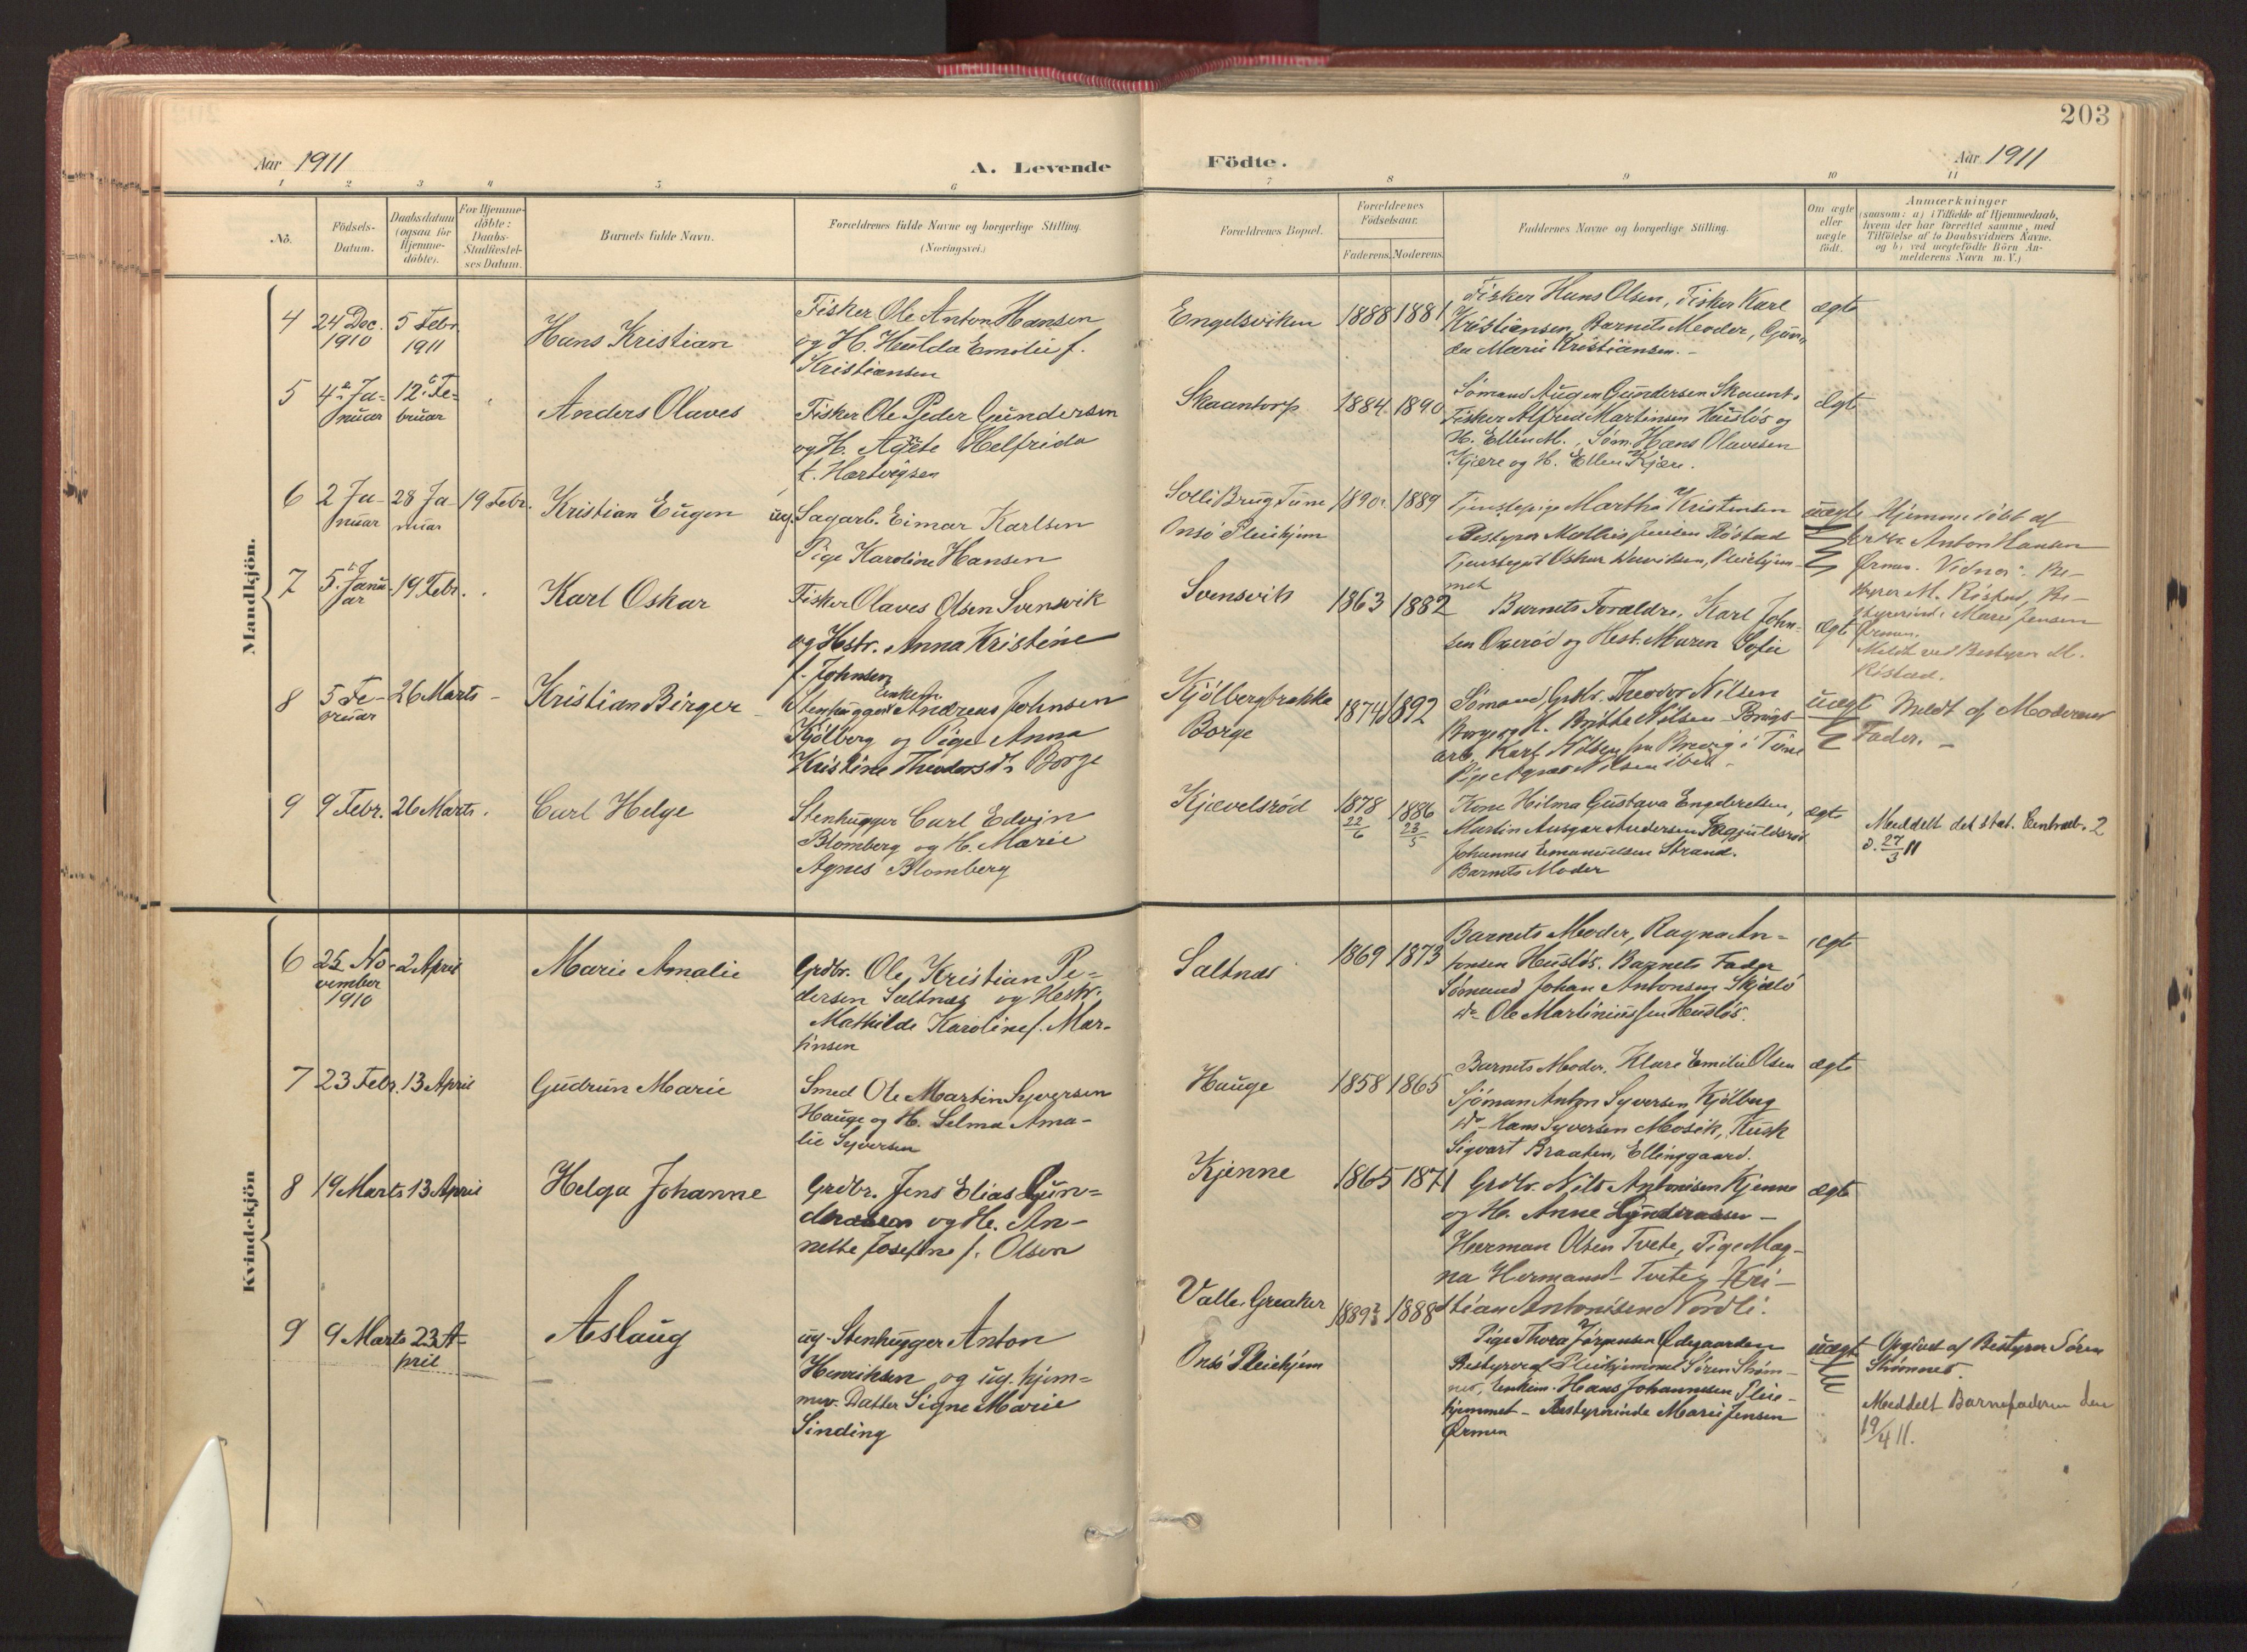 203
Aar 1911
A. Levende
Födte.
Aar 1911
1 2 3 4 5 6 7 8 9 10 11
No.
Födsels-
Datum.
Daabsdatum
(ogsaa for
Hjemme-
döbte).
For Hjemme-
döbte:
Daabs-
Stadfæstel-
ses Datum.
Barnets fulde Navn.
Forældrenes fulde Navne og borgerlige Stilling
(Næringsvei.)
Forældrenes Bopæl.
Forældrenes
Födselsaar.
Faderens. Moderens.
Faddernes Navne og borgerlige Stilling.
Om ægte
eller
uægte
födt.
Anmærkninger
(saasom: a) i Tilfælde af Hjemmedaab,
hvem der har forrettet samme, med
Tilföielse af to Daabsvidners Navne.
og b) ved uægtefödte Börn An-
melderens Navn m. V.)
Mandkjön.
4
24 Dec.
1910
5 Febr.
1911
Hans Kristian
Fisker Ole Anton Hansen
og H. Hulda Emilie f.
Kristiansen
Engelsviken
1888 1881
Fisker Hans Olsen, Fisker Karl
Kristiansen, Barnets Moder, Gun-
da Marie Kristiansen. -
ægte
5
4de Ja-
nuar
12te Fe-
bruar
Anders Olaves
Fisker Ole Peder Gundersen
og H. Agnete Helfrida
f. Hartvigsen
Skaantorp
1884. 1890
Sømand Augen Gundersen Skaant.
Fisker Alfred Martinsen Husløs og
H. Ellen M., Søm. Hans Olavesen
Kjære og H. Ellen Kjære.
ægte
6
2 Ja-
nuar
28 Ja
nuar
19 Febr.
Kristian Eugen
ug. Sagarb. Eimar Karlsen
Pige Karoline Hansen
Solli Brug Tune
Onsø Pleiehjem
1890. 1889
Tjenstepige Martha Kristensen
Bestyrer Mathis Jensen Röstad
Tjenstegut Oskar Davidsen, Pleiehjem-
met
uægte
Hjemmedöbt af
Anton Hansen
Ørmen. Vidner: Be-
styrer M. Röstad, Be-
styrerinde Marie Jensen
Ørmen.
Meldt ved Bestyrer M.
Röstad.
7
5te Janu
ar
19 Febr.
Karl Oskar
Fisker Olaves Olsen Svensvik
og Hstr. Anna Kristine
f. Johnsen
Svensvik
1863 1882
Barnets Forældre, Karl John-
sen Oxerød og Hest. Maren Sofie
ægte
8
5 Fe-
bruar
26 Marts
Kristian Birger
Enkem.
Stenhugger Andreas Johnsen
Kjølberg og Pige Anna
Kristine Theodorsdtr Borge
Kjölbergbrakka
Borge
1874 1892
Sømand Grbr. Theodor Nilsen
Borge og H. Britte Nilsen Brugs-
arb. Karl Nilsen fra Brevig i Tune
Pige Agnes Nilsen ibid. -
uægte
Meldt af Moderens
Fader. -
9
9 Febr.
26 Marts.
Carl Helge
Stenhugger Carl Edvin
Blomberg og H. Marie
Agnes Blomberg
Kjævelsrød
1878
22/6
1886
23/5
Kone Hilma Gustava Engebretsen,
Martin Ansgar Andersen
Johannes Emanuelsen Strand.
Barnets Moder
ægte
Meddelt det stat. Centralb. 2
d. 27/3 11
Kvindekjön
6
25 No-
vember
1910
2 April
Marie Amalie
Grdbr. Ole Kristian Pe-
dersen Saltnæs og Hestr.
Mathilde Karoline f. Mar-
tinsen
Saltnæs
1869 1873
Barnets Moder, Ragna An-
tonsen Husløs. Barnets Fader
Sømand Johan Antonsen Skjælø
do Ole Martiniussen Husløs.
ægte
7
23 Febr.
13 April
Gudrun Marie
Smed Ole Martin Syversen
Hauge og H. Selma Ama-
lie Syversen
Hauge
1858 1865
Barnets Moder. Klara Emilie Olsen
Sjöman Anton Syversen Kjölberg
do Hans Syversen Mosik, Kusk
Sigvart Braaten, Ellinggaard.
ægte
8
19 Marts
13 April
Helga Johanne
Grdbr. Jens Elias Gun-
dersen og H. An-
nette Josefine f. Olsen
Kjenne
1865 1871
Grdbr. Nils Antonisen Kjenne
og H. Anne Gundersen -
Herman Olsen Tvete, Pige Mag-
na Hermansd. Tvete, Kri-
stian Antonisen Nordli.
ægte
9
9 Marts
23 A-
pril
Aslaug
ug. Stenhugger Anton
Henriksen og ug. hjem-
mev. Datter Signe Marie
Sinding
Valle, Greaker
Onsö Pleiehjem
1889 1888
Pige Thora Jørgensen Ødegaarden
Bestyrer af Pleiehjemmet Søren Strøm-
nes, Enkem. Hans Johannesen Pleie-
hjemmet - Bestyrerinde Marie Jensen
Ørmen
uægt
Opgivet af Bestyrer Søren
Strømnes.
Meddelt Barnefaderen den
19/4 11.